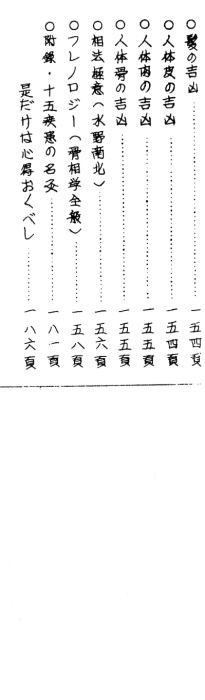 ○髪の吉凶……………一五四頁
○人体皮の吉凶……………一五四頁
○人体肉の吉凶……………一五五頁
○人体骨の吉凶……………一五五頁
○相法極意（水野南北）……………一五六頁
○フレノロジー（骨相学全般）……………一五八頁
○附録・十五疾患の名灸……………一八一頁
是だけは心得おくべし……………一八六頁